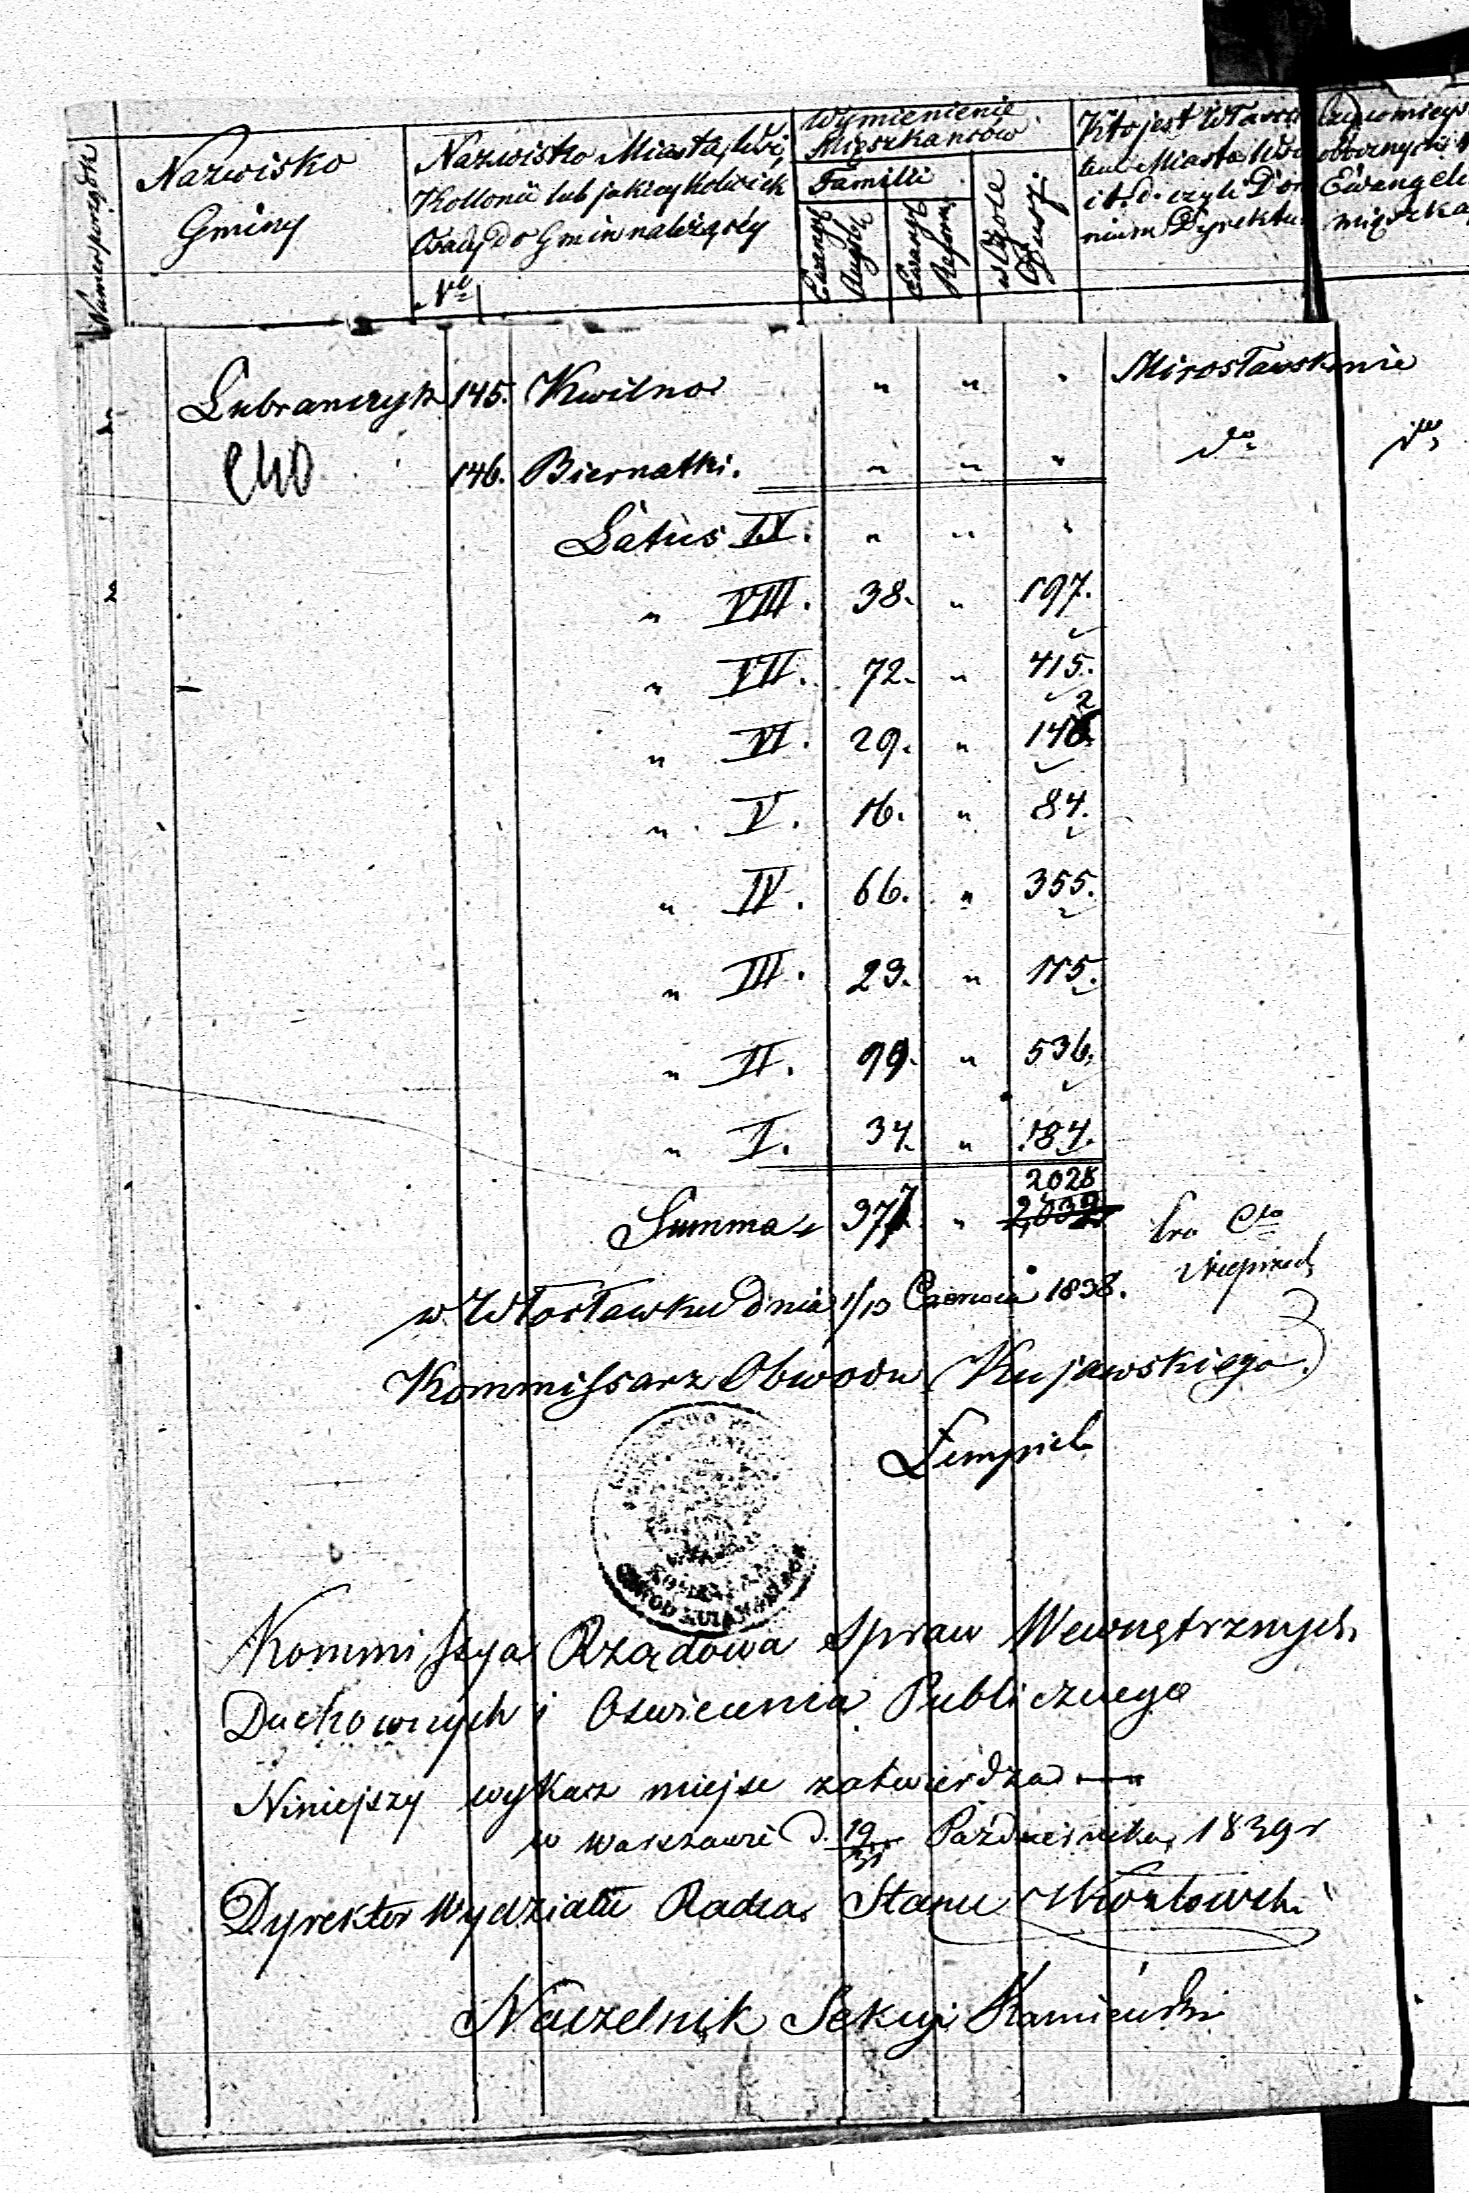 Numer porządk
Nazwisko
Gminy
Nazwisko Miasta, Wsi,
Kollonii lub jakiey kolwiek
Osady do Gmin należącéy
Nº
Wymienienie
Mięszkancow
Familii
Ewangel Augsb
Ewangel Reform
w Ogole Dusz.
Kto jest Właści
lem Miasta Wsi
i t. d. czyli Do
nium Dyrektu
Ewangeli
mięszka
Lubranczyk 145. Kwilno " " " Mirosławski nie
146. Biernatki. " " " dº dº
Latus IX. " " "
" VIII. 38. " 197.
" VII. 72. " 415.
2
" VI. 29. " 148.
" V. 16. " 84.
" IV. 66. " 355.
" III. 23. " 115.
" II. 99. " 536.
" I. 34. " 184.
2028
Summa 377 " 2,032
w Włocławku dnia 1/13 Czerwca 1838.
Kommissarz Obwodu Kujawskiego
Zempich
Kommissya Rządowa Spraw Wewnętrznych
Duchownych i Oswiecenia Publicznego
Niniejszy wykaz miejsc zatwierdza
w Warszawie d. 19/31 Pazdziernika 1839 r
Dyrektor Wydziału Radca Stanu
Naczelnik Sekcyi Kamieński